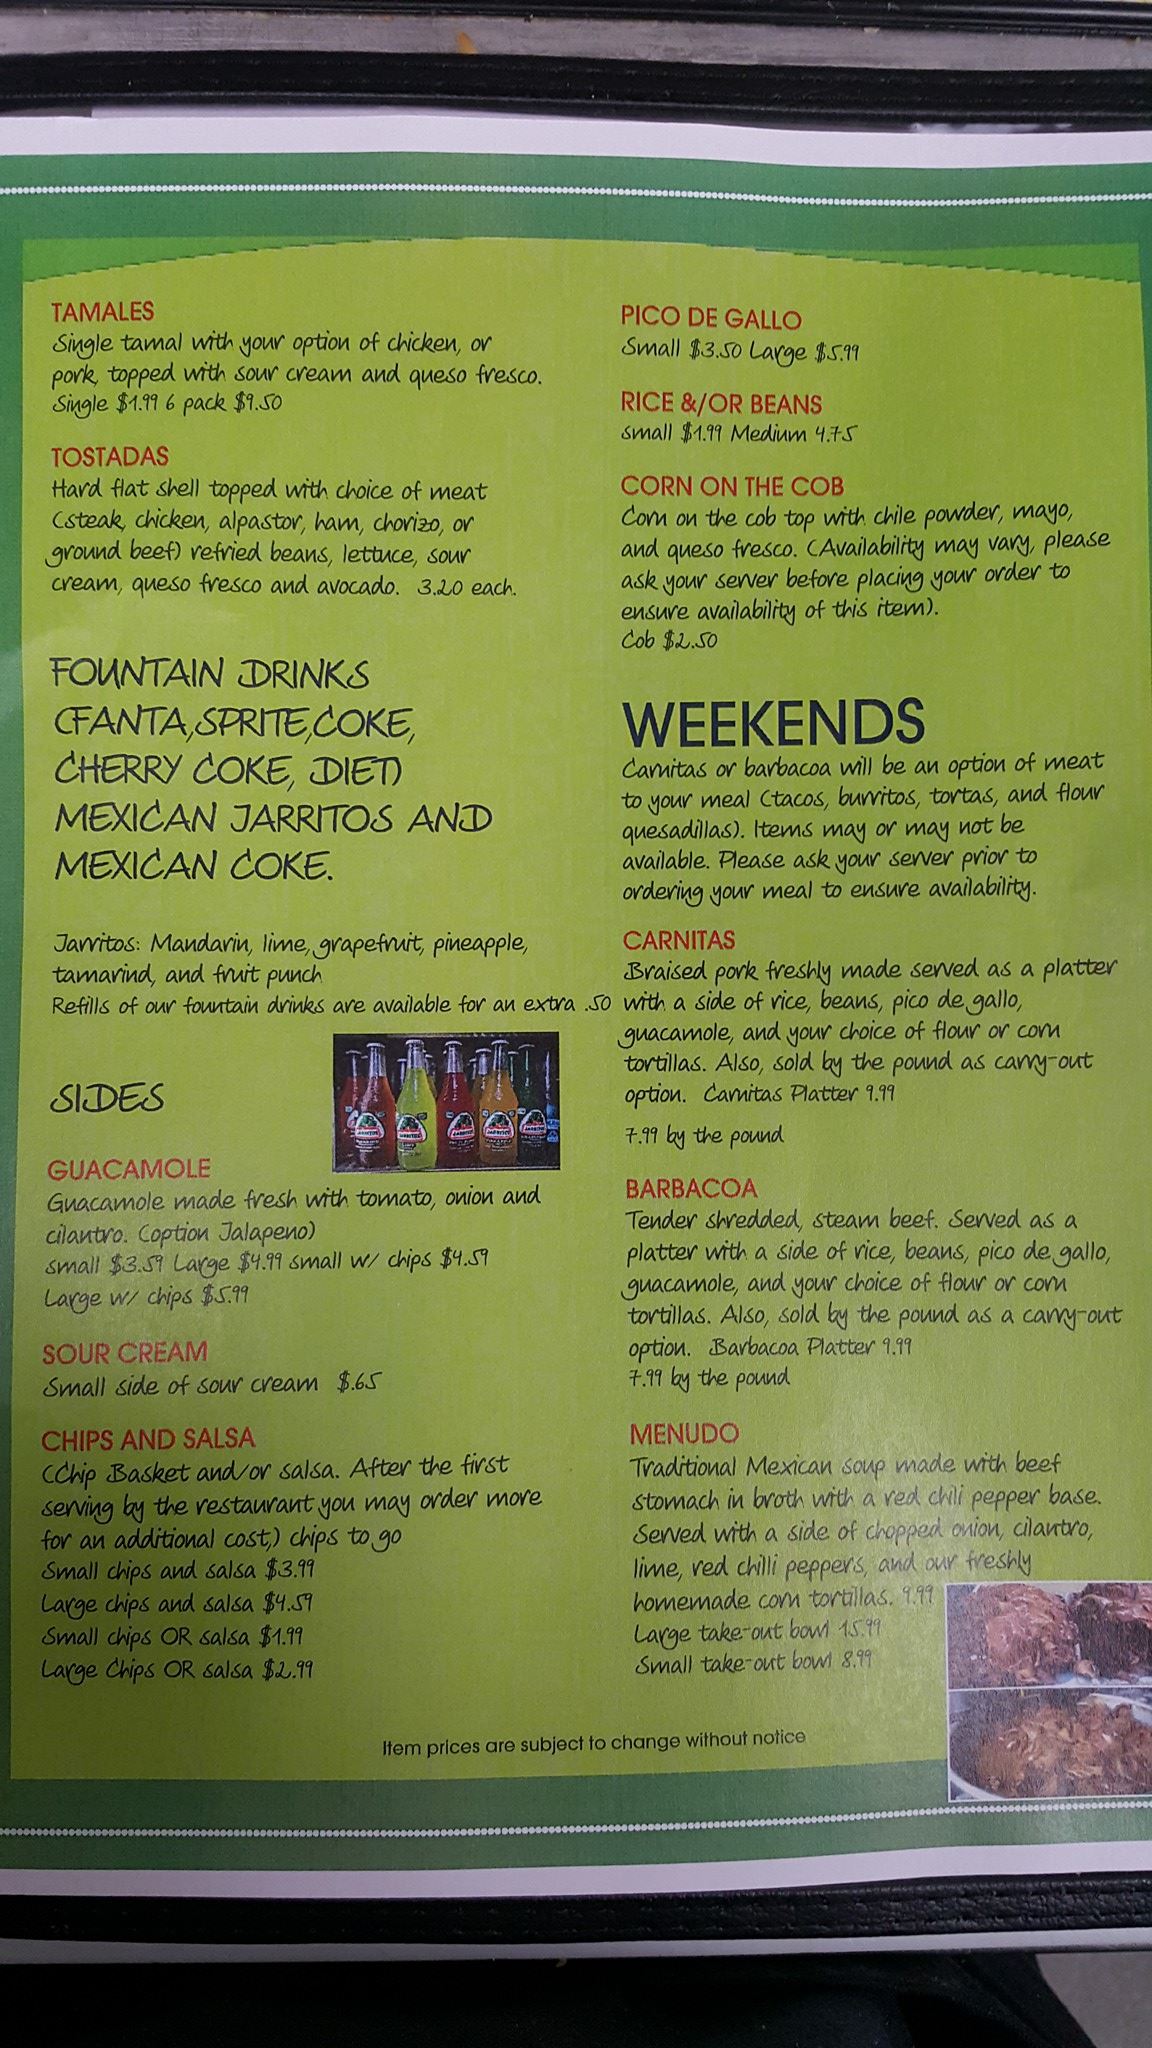 TAMALES
Single tamal with your option of chicken, or
pork, topped with sour cream and queso fresco.
Single $1.99 6 pack $9.50
TOSTADAS
Hard flat shell topped with choice of meat
(steak, chicken, alpastor, ham, chorizo, or
ground beef) refried beans, lettuce, sour
cream, queso fresco and avocado. 3.20 each.
FOUNTAIN DRINKS
(FANTA,SPRITE,COKE,
CHERRY COKE, DIET)
MEXICAN JARRITOS AND
MEXICAN COKE.
Jarritos: Mandarin, lime, grapefruit, pineapple,
tamarind, and fruit punch
Refills of our fountain drinks are available for an extra .50
SIDES
GUACAMOLE
Guacamole made fresh with tomato, onion and
cilantro. (option Jalapeno)
small $3.59 Large $4.99 small w/ chips $4.59
Large w/ chips $5.99
SOUR CREAM
Small side of sour cream $.65
CHIPS AND SALSA
(Chip Basket and/or salsa. After the first
serving by the restaurant you may order more
for an additional cost,) chips to go
Small chips and salsa $3.99
Large chips and salsa $4.59
Small chips OR salsa $1.99
Large Chips OR salsa $2.99
PICO DE GALLO
Small $3.50 Large $5.99
RICE &/OR BEANS
small $1.99 Medium 4.75
CORN ON THE COB
Corn on the cob top with chile powder, mayo,
and queso fresco. (Availability may vary, please
ask your server before placing your order to
ensure availability of this item).
Cob $2.50
WEEKENDS
Carnitas or barbacoa will be an option of meat
to your meal (tacos, burritos, tortas, and flour
quesadillas). Items may or may not be
available. Please ask your server prior to
ordering your meal to ensure availability.
CARNITAS
Braised pork freshly made served as a platter
with a side of rice, beans, pico de gallo,
guacamole, and your choice of flour or corn
tortillas. Also, sold by the pound as carry-out
option. Carnitas Platter 9.99
7.99 by the pound
BARBACOA
Tender shredded, steam beef. Served as a
platter with a side of rice, beans, pico de gallo,
guacamole, and your choice of flour or corn
tortillas. Also, sold by the pound as a carry-out
option. Barbacoa Platter 9.99
7.99 by the pound
MENUDO
Traditional Mexican soup made with beef
stomach in broth with a red chili pepper base.
Served with a side of chopped onion, cilantro,
lime, red chilli peppers, and our freshly
homemade corn tortillas. 9.99
Large take-out bowl 15.99
Small take-out bowl 8.99
Item prices are subject to change without notice